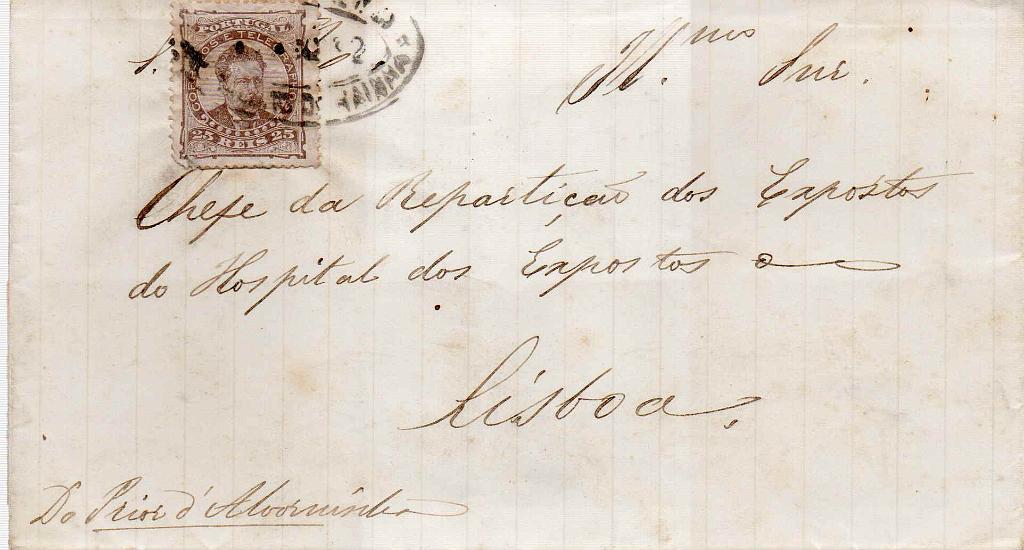 PORTUGAL
CORREIOS E TELEGRAPHOS
25 REIS 25
RAINHA
S. N.
Illmo Snr.
Chefe da Repartição dos Expostos
do Hospital dos Expostos
Lisboa.
Do Prior d'Alvorninha